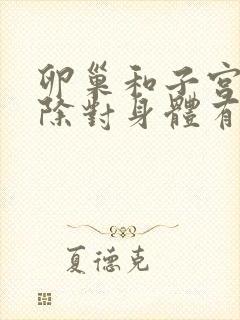 卵巢和子宮
除對身體有
夏德克